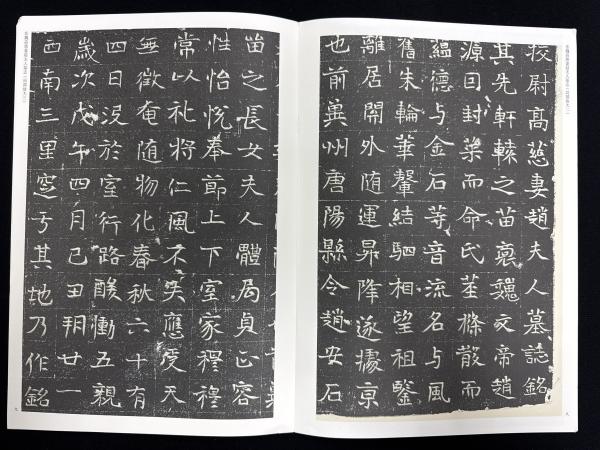 校尉高慈妻趙夫人墓誌銘
其先軒轅之苗裔魏文帝趙
源囙封葉而命氏莖條散而
蘊德与金石等音流名与風
舊朱輪華轂結駟相望祖鑒
離居開外随運昇降遂據京
也前冀州唐陽縣令趙安石
苗之長女夫人體局貞正容
性怡悅奉節上下室家穆穆
常以礼將仁風不失應受天
無徵奄随物化春秋六十有
四日没於室行路酸慟五親
歲次戊午四月己丑朔廿一
西南三里窆于其地乃作銘